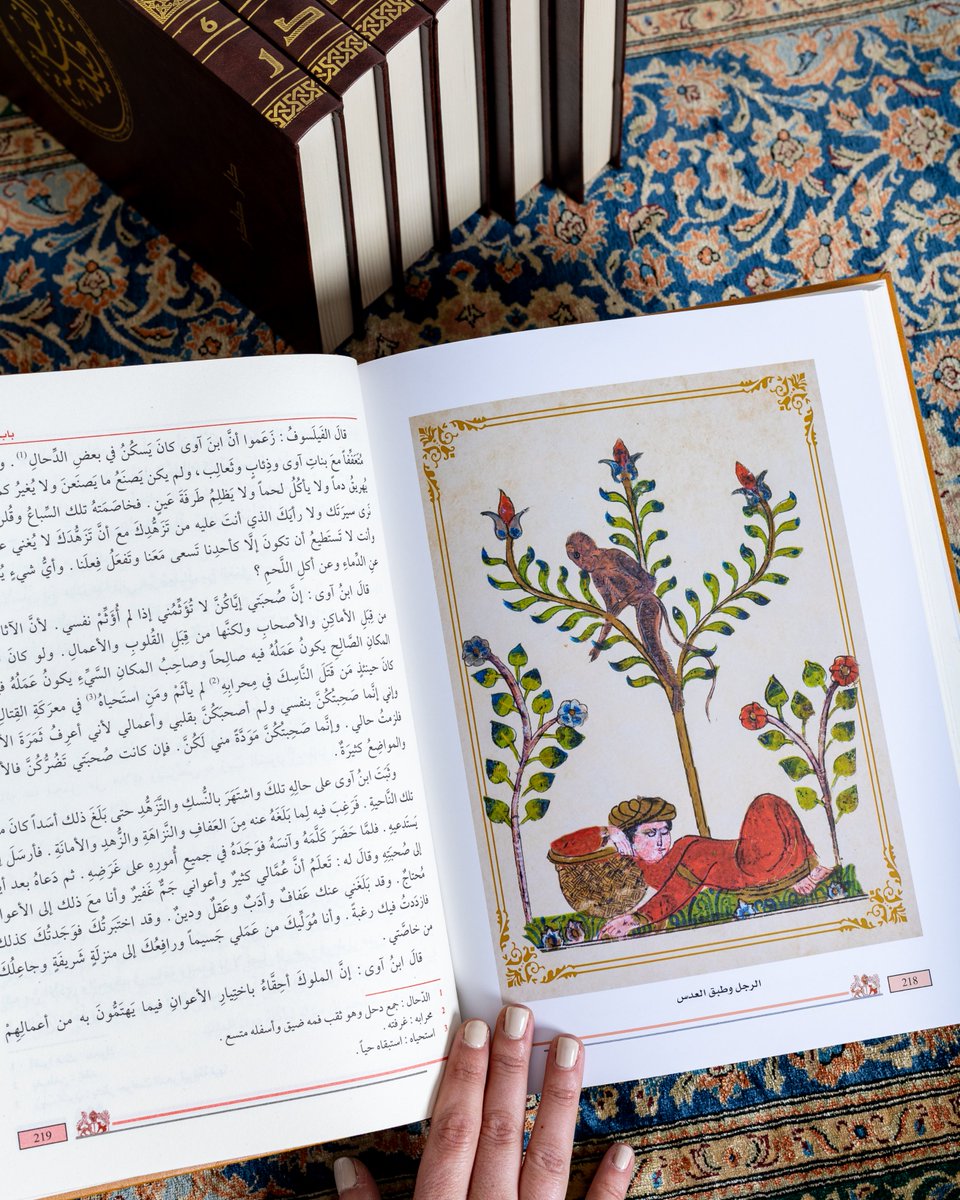 6
الرجل وطبق العدس
218
باب
قالَ الفَيلَسوفُ : زَعَموا أنَّ ابنَ آوى كانَ يَسكُنُ في بعضِ الدِّحالِ (1) . و
مُتَعَفِّفاً مَعَ بناتِ آوى وذِئابٍ وثَعالِب ، ولم يكن يَصنَعُ ما يَصنَعنَ ولا يُغيرُ كما
يُهريقُ دماً ولا يأكُلُ لحماً ولا يَظلِمُ طَرفَةَ عَينٍ . فخاصَمَتهُ تلك السِّباعُ وقُلنَ
نَرى سيرَتَكَ ولا رأيَكَ الذي أنتَ عليه من تَزَهُّدِكَ مَعَ أنَّ تَزَهُّدَكَ لا يُغني ع
وأنت لا تَستَطيعُ أن تكونَ إلّا كأحدِنا تَسعى مَعَنا وتَفعَلُ فِعلَنا . وأيُّ شيءٍ يُ
عن الدِّماءِ وعن أكلِ اللَّحم ؟
قالَ ابنُ آوى : إنَّ صُحبَتي إيّاكُنَّ لا تُؤَثِّمُني إذا لم أُؤَثِّم نفسي . لأنَّ الآثا
من قِبَلِ الأماكِنِ والأصحابِ ولكنَّها من قِبَلِ القُلوبِ والأعمالِ . ولو كانَ
المكانِ الصَّالِحِ يكونُ عَمَلُهُ فيه صالِحاً وصاحِبُ المكانِ السَّيِّءِ يكونُ عَمَلُهُ ف
كانَ حينئذٍ مَن قَتَلَ النَّاسِكَ في مِحرابِهِ (2) لم يأثَمْ ومَنِ استَحياهُ (3) في معرَكةِ القِتالِ
وإني إنَّما صَحِبتُكُنَّ بنفسي ولم أصحَبكُنَّ بقلبي وأعمالي لأني أعرِفُ ثَمَرَةَ الأ
فلَزِمتُ حالي . وإنَّما صَحِبتُكُنَّ مَوَدَّةً مني لَكُنَّ . فإن كانت صُحبَتي تَضُرُّكُنَّ فالأ
والمواضِعُ كثيرَةٌ .
وثَبَتَ ابنُ آوى على حالِهِ تلكَ واشتَهَرَ بالنُّسكِ والتَّزَهُّدِ حتى بَلَغَ ذلك أسَداً كانَ م
تلكَ النَّاحيةِ . فرَغِبَ فيه لِما بَلَغَهُ عنه مِنَ العَفافِ والنَّزاهَةِ والزُّهدِ والأمانَةِ . فأرسَلَ إ
يَستَدعيهِ . فلمَّا حَضَرَ كلَّمَهُ وآنَسَهُ فوَجَدَهُ في جميعِ أُمورِهِ على غَرَضِهِ . ثم دَعاهُ بعد أ
إلى صُحبَتِهِ وقالَ له : تَعلَمُ أنَّ عُمَّالي كثيرٌ وأعواني جَمٌّ غَفيرٌ وأنا معَ ذلك إلى الأعوا
مُحتاجٌ . وقد بَلَغَني عنك عَفافٌ وأدَبٌ وعَقلٌ ودينٌ . وقد اختَبَرتُكَ فوَجَدتُكَ كذلك
فازدَدتُ فيك رغبةً . وأنا مُوَلّيكَ من عَمَلي جَسيماً ورافِعُكَ إلى منزلَةٍ شَريفَةٍ وجاعِلُكَ
من خاصَّتي .
قالَ ابنُ آوى : إنَّ الملوكَ أحِقَّاءُ باختيارِ الأعوانِ فيما يَهتَمُّونَ به من أعمالِهِمْ
1 الدِّحال : جمع دحل وهو ثقب فمه ضيق وأسفله متسع .
2 محرابه : غرفته .
3 استحياه : استبقاه حياً .
219